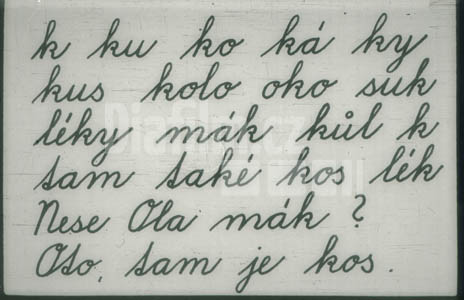 k ku ko ká ky
kus kolo oko suk
léky mák kůl k
tam také kos lék
Nese Ola mák ?
Oto, tam je kos.